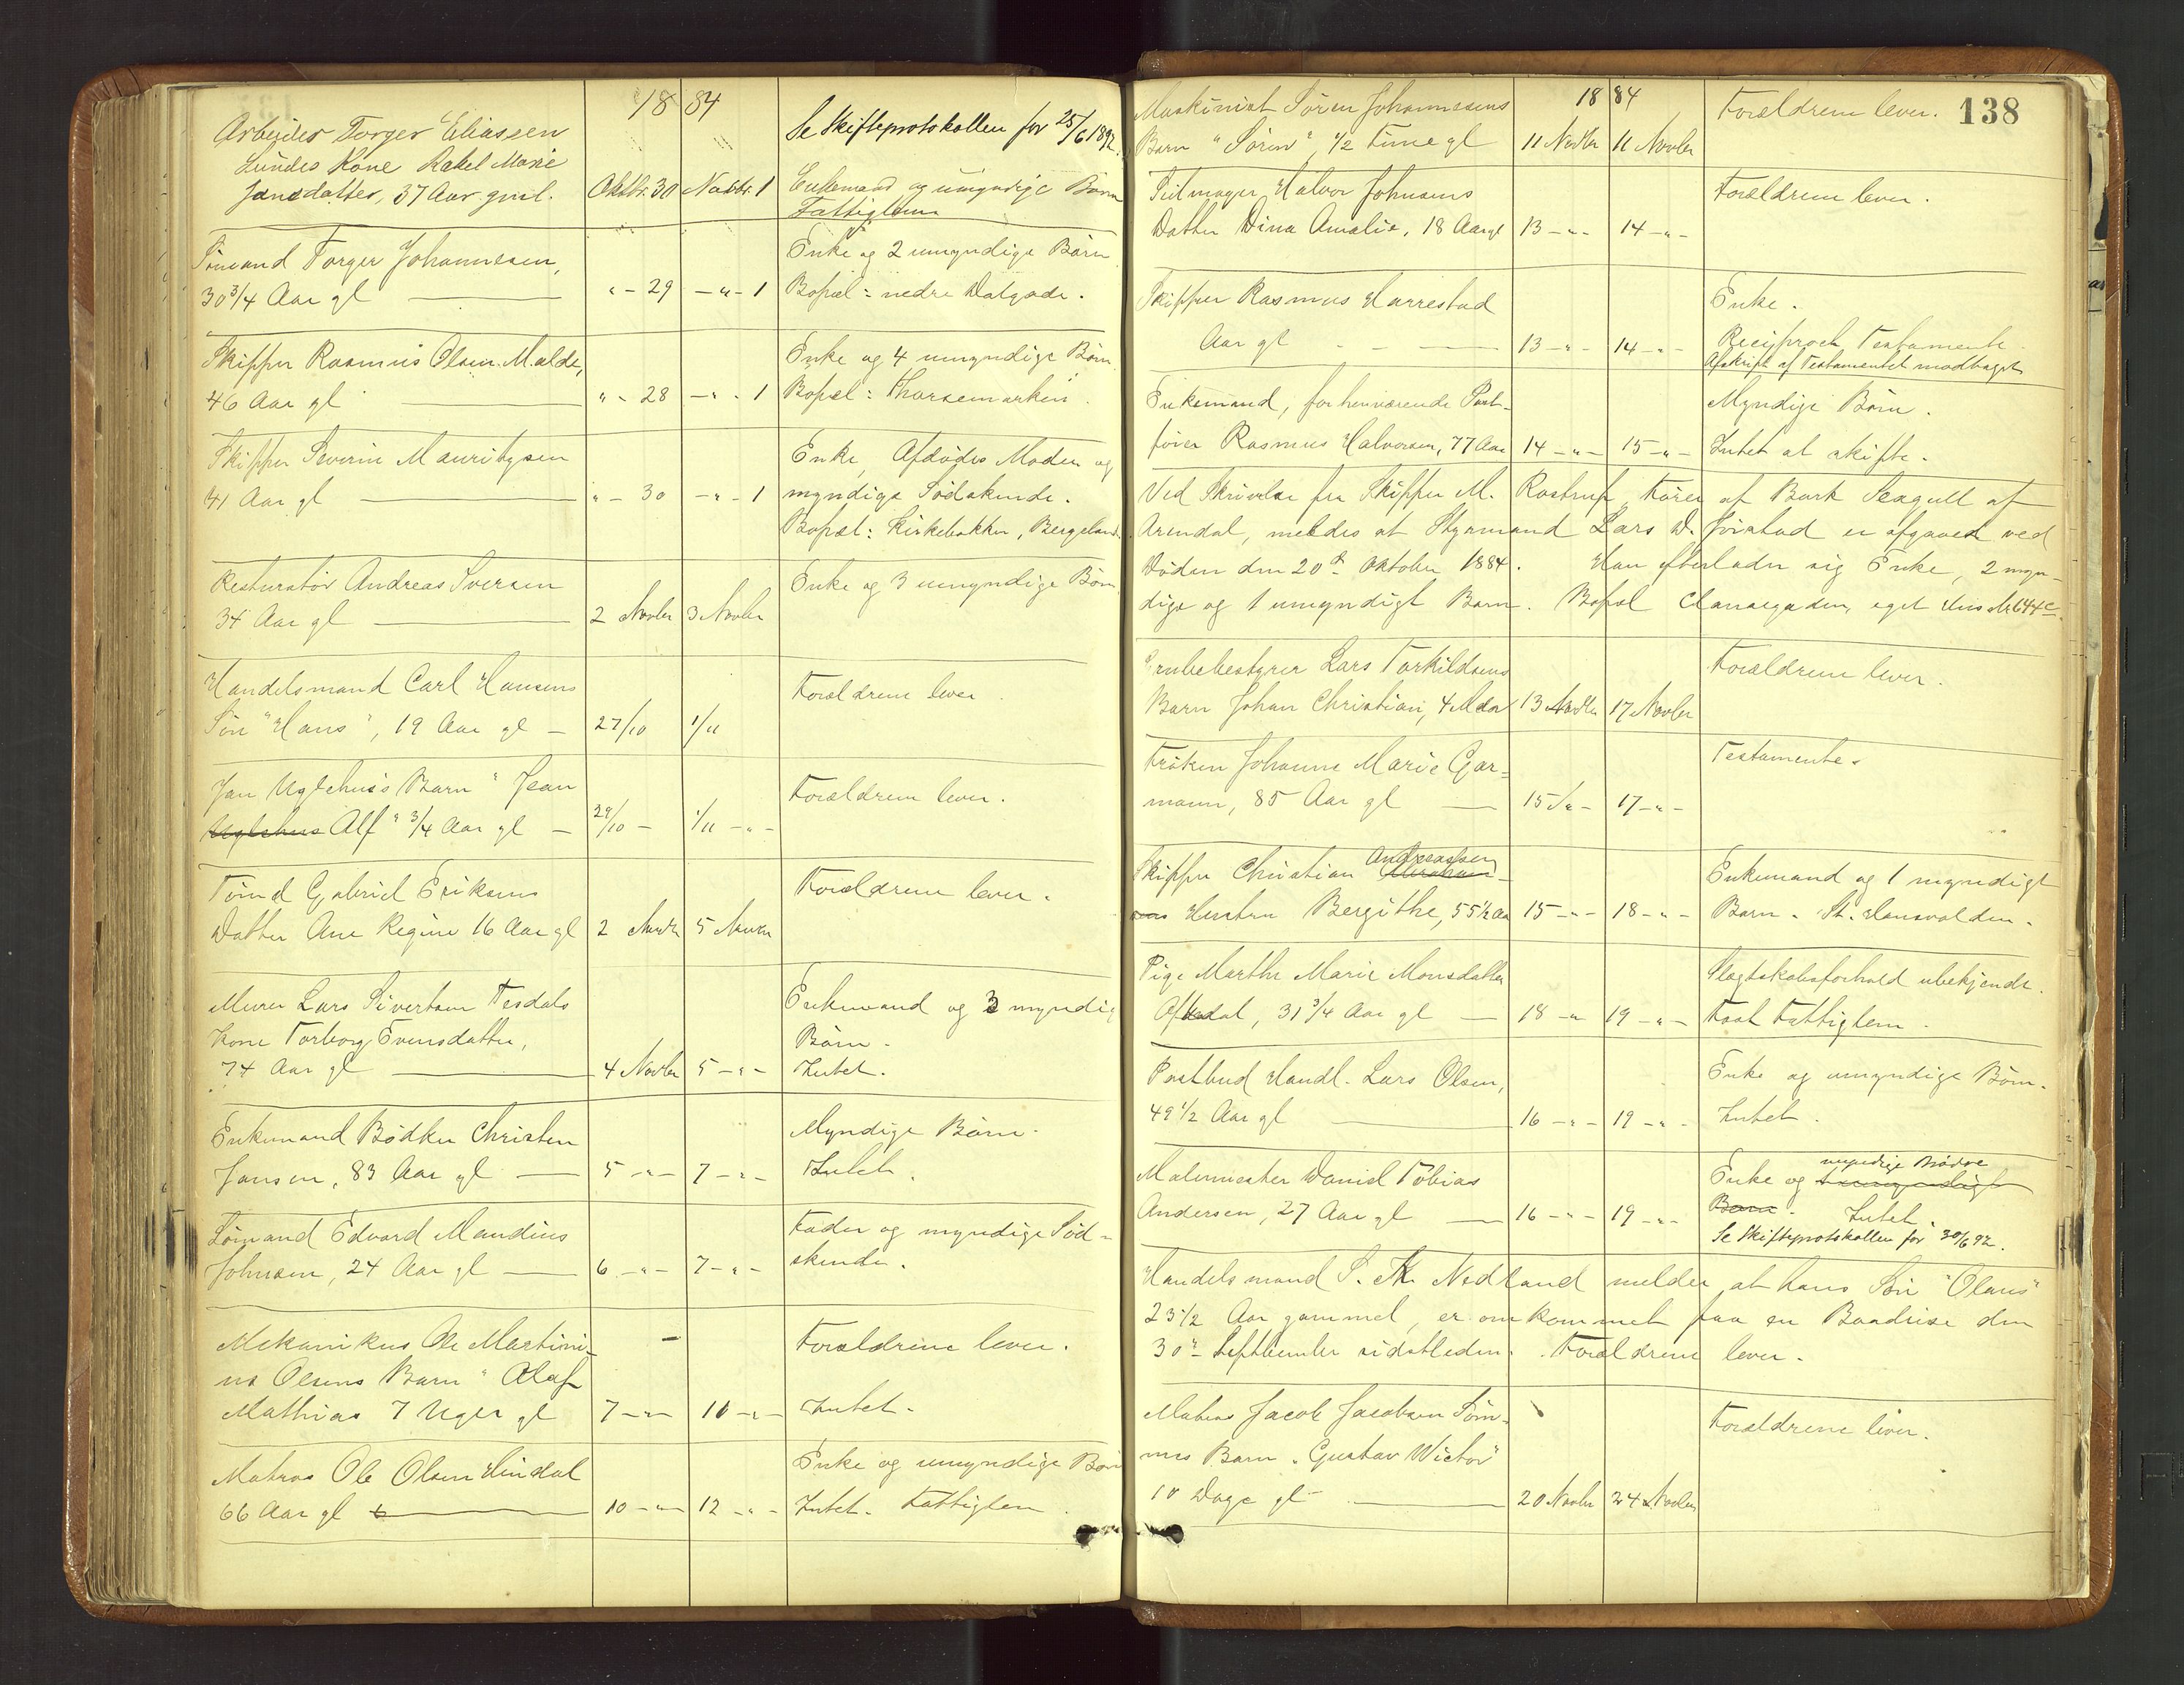 18 84
Arbeider Torger Eliassen
Lundes Kone Rakel Marie
Jansdatter, 37 Aar gml. Oktbr. 30 Novbr. 1
Se Skifteprotokollen for 25/6 1892.
Enkemand og umyndige Børn
Fattiglem
Sømand Torger Johannesen,
30 3/4 Aar gl " - 29 - " - 1
Enke og 2 umyndige Børn
Bopæl: nedre Dalgade.
Skipper Rasmus Olsen Malde,
46 Aar gl " - 28 - " - 1
Enke og 4 umyndige Børn
Bopæl:
Skipper Severin Mauritzsen
41 Aar gl " - 30 - " - 1
Enke, Afdødes Moder og
myndige Sødskende.
Bopæl: Kirkebakken, Bergeland.
Restauratør Andreas Iversen
34 Aar gl 2 Novber 3 Novber
Enke og 3 umyndige Børn
Handelsmand Carl Hansens
Søn "Hans", 19 Aar gl - 27/10 1/11
Forældrene lever.
Jan Uglehus's Barn "Jean
Uglehus Alf" 3/4 Aar gl - 29/10 - 1/11 - " -
Forældrene lever.
Tømd Gabriel Eriksens
Datter Ane Regine 16 Aar gl 2 Novbr 5 Novbr
Forældrene lever.
Murer Lars Sivertsen Tesdals
Kone Torborg Evensdatter,
74 Aar gl 4 Novber 5 - " -
Enkemand og 3 myndig
Børn.
Intet.
Enkemand Bødker Christen
Jansen, 83 Aar gl 5 - " - 7 - " -
Myndige Børn.
Intet.
Sømand Edvard Mandius
Johnsen, 24 Aar gl 6 - " - 7 - " -
Fader og myndige Sød-
skende.
Mekanikus Ole Martini-
us Olsens Barn "Olaf
Mathias 7 Uger gl 7 - " - 10 - " -
Forældrene lever.
Intet.
Matros Ole Olsen Hindal
66 Aar gl 10 - " - 12 - " -
Enke og umyndige Børn
Intet. Fattiglem
138
18 84
Maskinist Søren Johannesens
Barn "Sören", 1/2 Time gl 11 Novber 11 Novber
Forældrene lever.
Halvor Johnsens
Datter Dina Amalie, 18 Aar gl 13 - " - 14 - " -
Forældrene lever.
Skipper Rasmus Harrestad
Aar gl - - 13 - " - 14 - " -
Enke.
Reciprock Testamente.
Afskrift af Testamentet modtaget
Enkemand, forhenværende Post-
fører Rasmus Halvorsen, 77 Aar 14 - " - 15 - " -
Myndige Børn.
Intet at skifte.
Ved Skrivelse fra Skipper M. Rostrup, Fører af Bark Seagull af
Arendal, meldes at Styrmand Lars D. Jørstad er afgaaet ved
Døden den 20de Oktober 1884. Han efterlader sig Enke, 2 myn-
dige og 1 umyndigt Barn. Bopæl Clausegaden, eget Hus No 644c.
Grubebestyrer Lars Torkildsens
Barn Johan Christian, 4 Mdr 13 Novbr 17 Novber
Forældrene lever.
Frøken Johanne Marie Gar-
mann, 85 Aar gl 15 - " - 17 - " -
Testamente.
Andreassen
Skipper Christian Abraham-
sens Hustru Bergithe, 55 1/2 Aar 15 - " - 18 - " -
Enkemand og 1 myndigt
Barn. St. Hansvolden.
Pige Marthe Marie Monsdatter
31 3/4 Aar gl 18 - " 19 - " -
Slægtskabsforhold ubekjendt.
Fast Fattiglem.
Postbud Handl. Lars Olsen,
49 1/2 Aar gl 16 - " - 19 - " -
Enke og umyndige Børn.
Intet.
Malermester Daniel Tobias
Andersen, 27 Aar gl 16 - " - 19 - " -
myndige Brødre
Enke og 1 umyndigt
Barn. Intet.
Se Skifteprotokollen for 30/6 92.
Handelsmand S. Th. Nedland melder, at hans Søn "Olaus"
23 1/2 Aar gammel, er omkommet paa en Baadreise den
30te September sidstleden. Forældrene lever.
Matros Jacob Jacobsen Søm-
mes Barn "Gustav Wictor"
10 Dage gl 20 Novber 24 Novber
Forældrene lever.